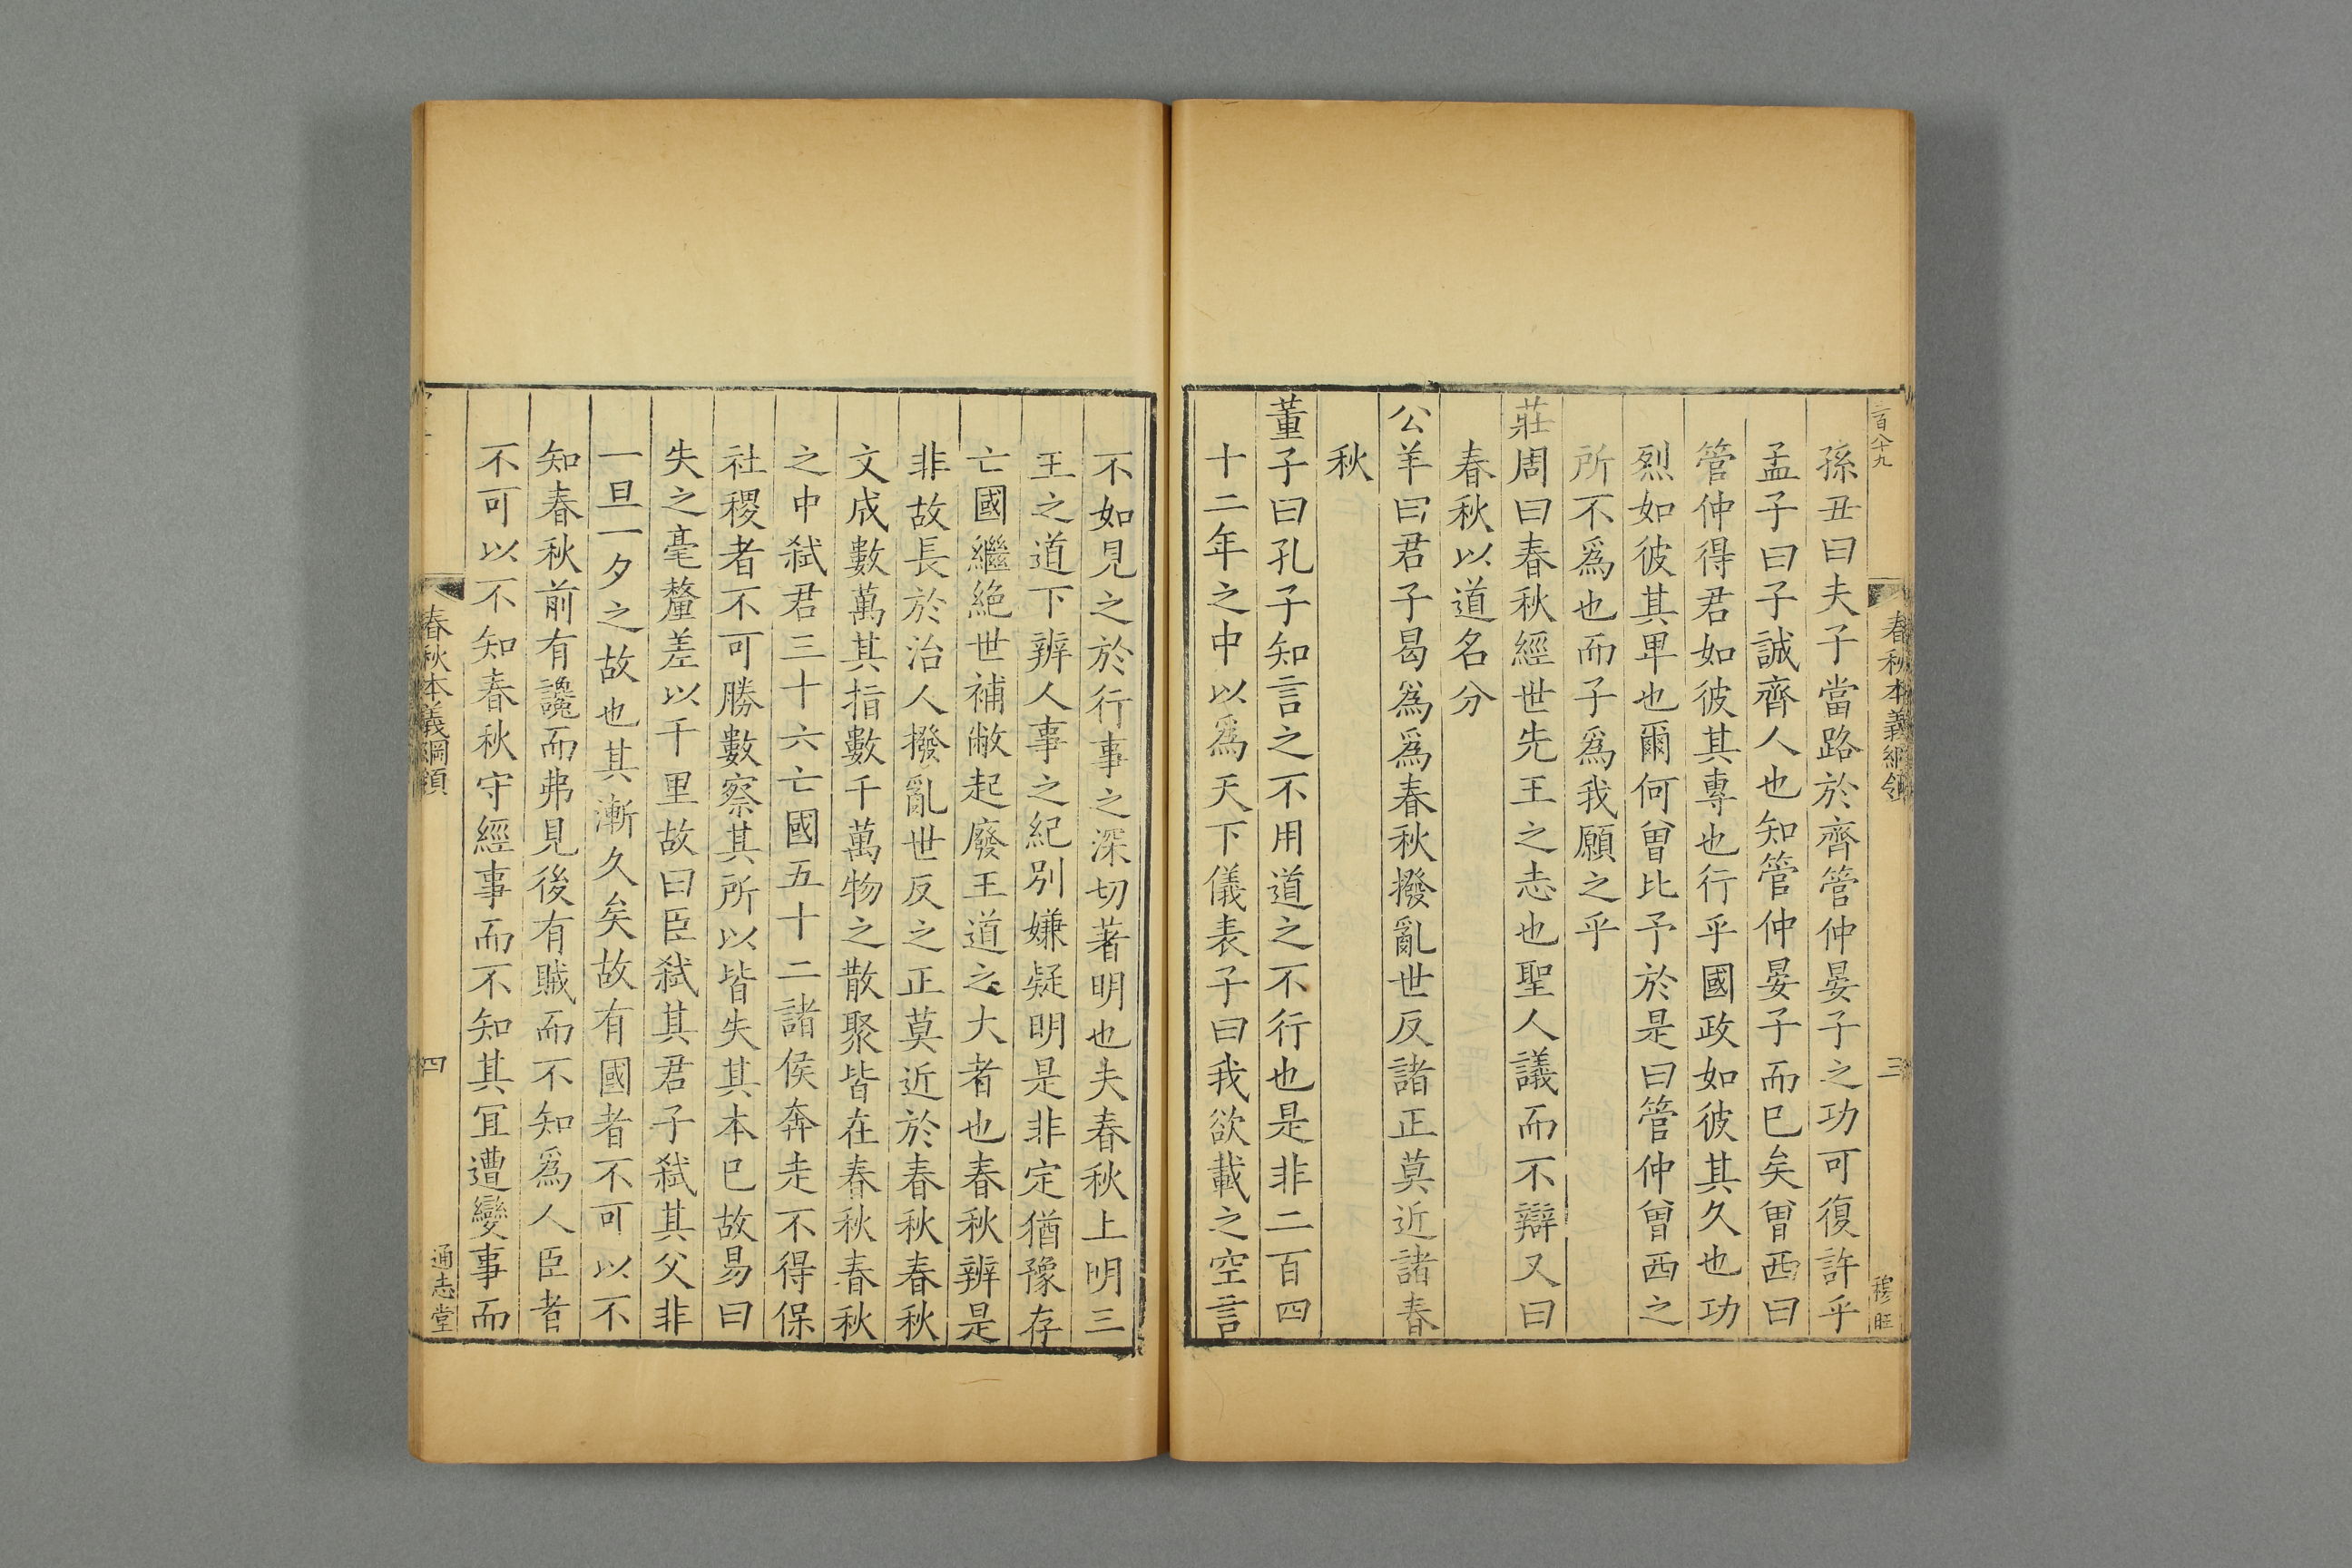 二百八十九
春秋本義綱領
三
穆旺
孫丑曰夫子當路於齊管仲晏子之功可復許乎
孟子曰子誠齊人也知管仲晏子而巳矣曾西曰
管仲得君如彼其專也行乎國政如彼其久也功
烈如彼其卑也爾何曾比予於是曰管仲曾西之
所不爲也而子爲我願之乎
莊周曰春秋經世先王之志也聖人議而不辯又曰
春秋以道名分
公羊曰君子曷爲爲春秋撥亂世反諸正莫近諸春
秋
董子曰孔子知言之不用道之不行也是非二百四
十二年之中以爲天下儀表子曰我欲載之空言
不如見之於行事之深切著明也夫春秋上明三
王之道下辨人事之紀別嫌疑明是非定猶豫存
亡國繼絶世補敝起廢王道之大者也春秋辨是
非故長於治人撥亂世反之正莫近於春秋春秋
文成數萬其指數千萬物之散聚皆在春秋春秋
之中弑君三十六亡國五十二諸侯奔走不得保
社稷者不可勝數察其所以皆失其本巳故易曰
失之毫釐差以千里故曰臣弑其君子弑其父非
一旦一夕之故也其漸久矣故有國者不可以不
知春秋前有讒而弗見後有賊而不知爲人臣者
不可以不知春秋守經事而不知其宜遭變事而
春秋本義綱領
四
通志堂